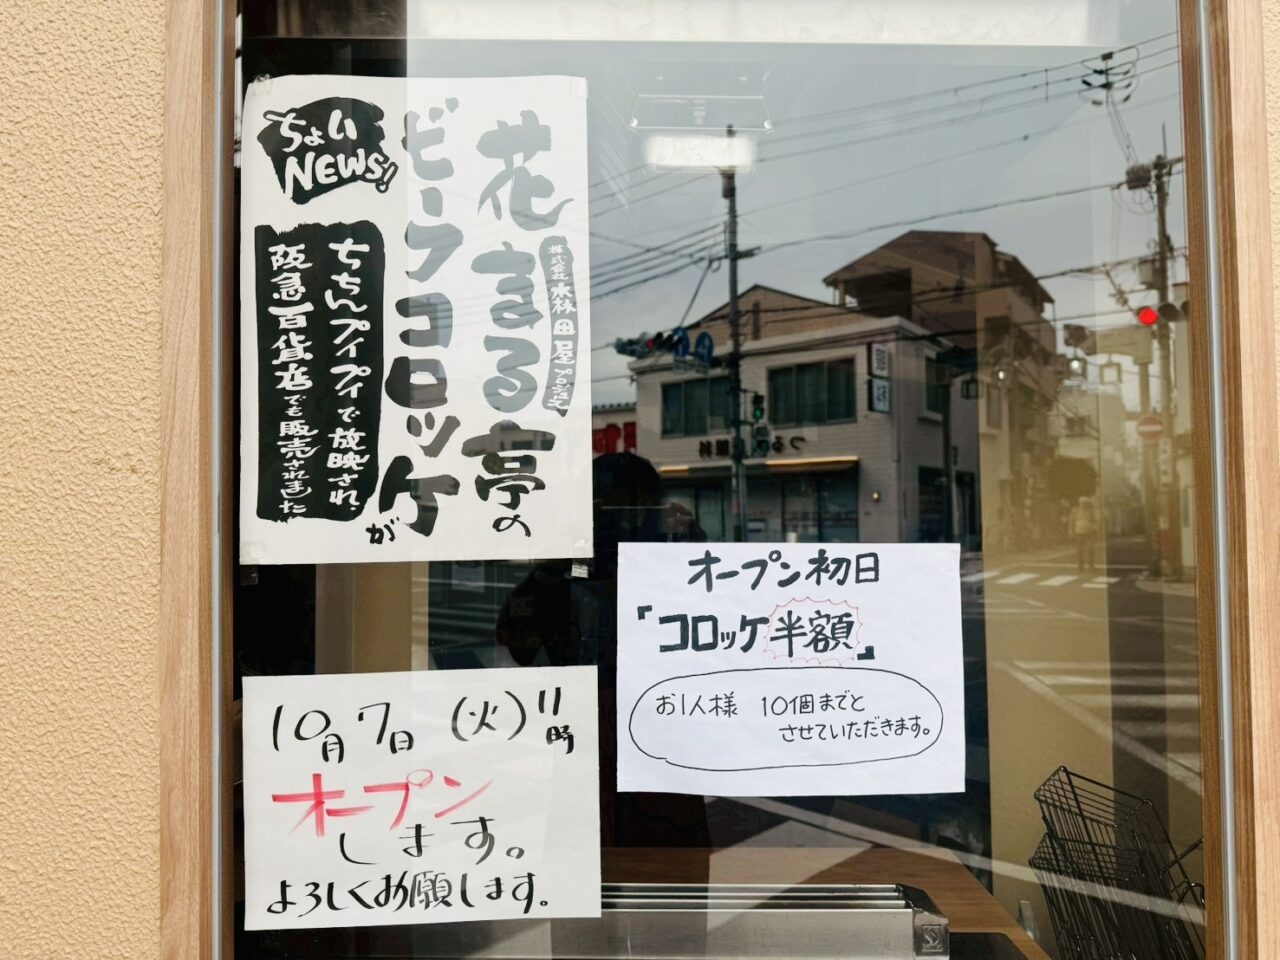 花まる亭の
株式会社 水林田屋 プロデュース
ビーフコロッケが
ちょい
NEWS!
ちちんプイプイで放映され、
阪急百貨店でも販売されました
オープン初日
「コロッケ半額」
お1人様 10個までと
させていただきます。
10月7日(火)11時
オープン
します。
よろしくお願します。